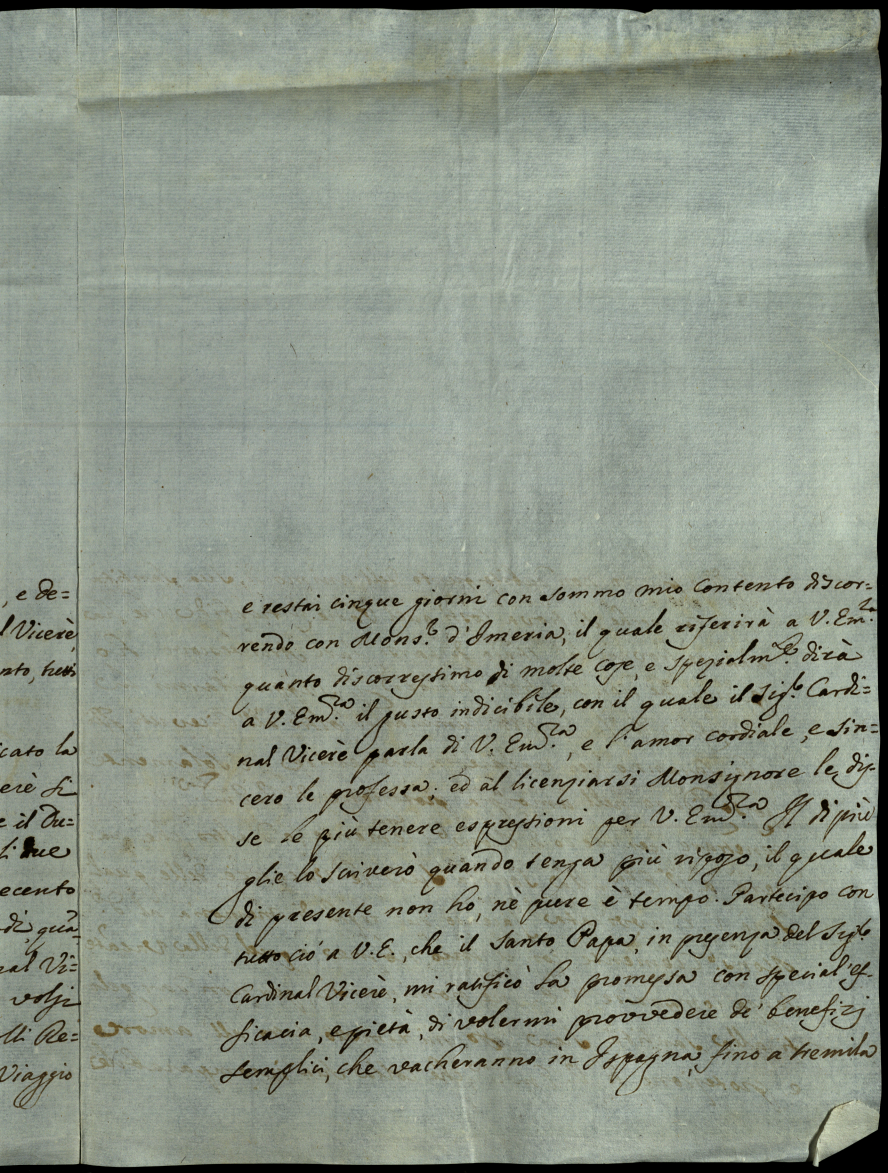 , e de=
l Vicerè
nto, tutti
icato la
erè si
e il Du=
li sue
ecento
di, quã=
nal Vi=
volsi
lli Re=
Viaggio
e restai cinque giorni con sommo mio contento discor=
rendo con Mons.r d'Imeria, il quale riferirà a V. Em.za
quanto discorressimo di molte cose, e spezialm.te dirà
a V. Em.za il gusto indicibile, con il quale il Sig.r Cardi=
nal Vicerè parla di V. Em.za, e l'amor cordiale, e sin=
cero le professa; ed al licenziarsi Monsignore le dis=
se le più tenere espressioni per V. Em.za Il di più
glie lo scriverò quando senza più riposo, il quale
di presente non ho, nè pure è tempo. Partecipo con
tutto ciò a V. E., che il Santo Papa, in presenza del Sig.r
Cardinal Vicerè, mi ratificò la promessa con special'ef=
ficacia, e pietà, di volermi provvedere de' benefizj
semplici, che vacheranno in Ispagna, fino a tremila